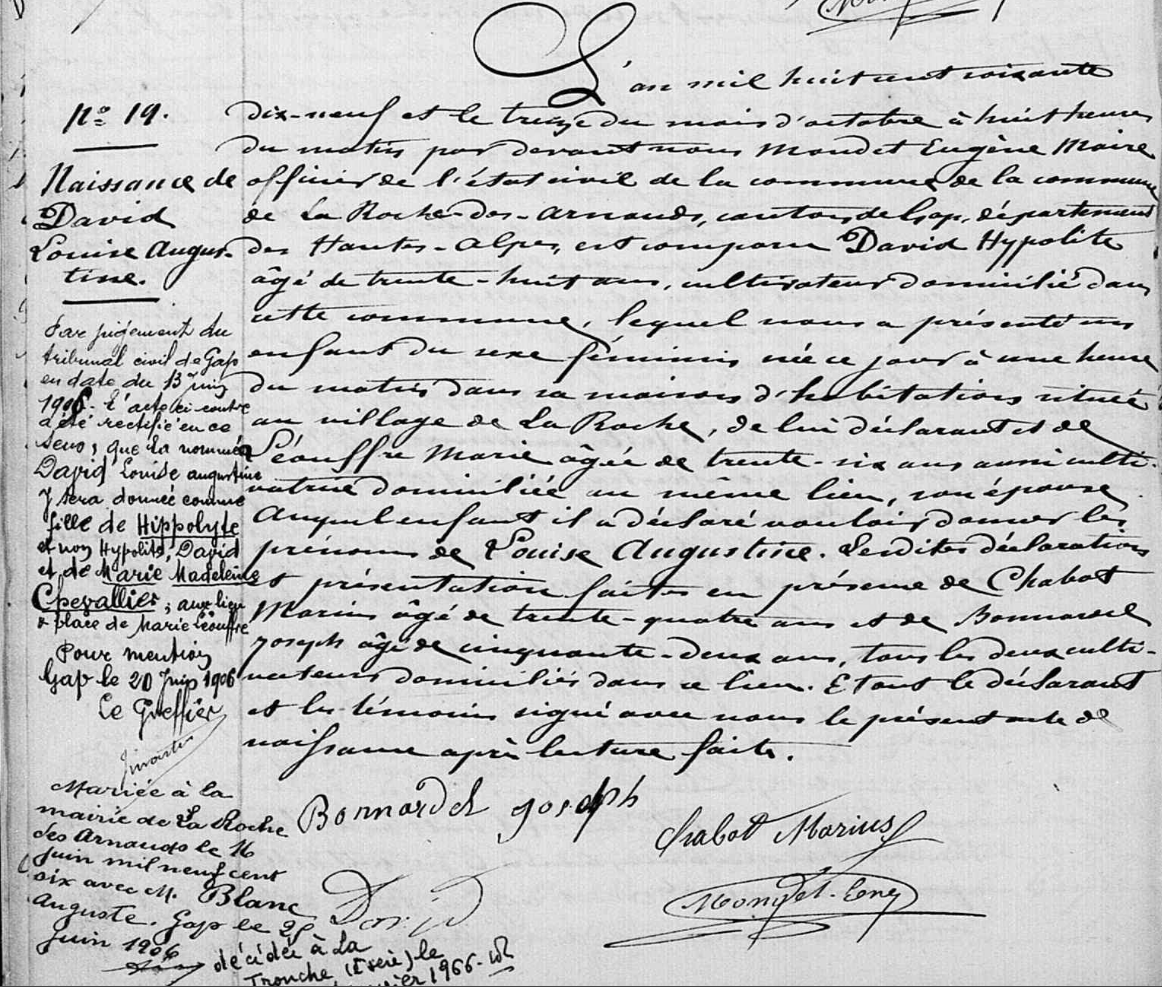 L'an mil huit cent soixante
dix-neuf et le treize du mois d'octobre à huit heures
du matin par devant nous Mondet Eugène Maire
officier de l'état civil de la commune de la commune
de La Roche-des-Arnauds, canton de Gap, département
des Hautes-Alpes, est comparu David Hypolite
âgé de trente-huit ans, cultivateur domicilié dans
cette commune, lequel nous a présenté un
enfant du sexe féminin née ce jour à une heure
du matin dans sa maison d'habitation située
au village de La Roche, de lui déclarant et de
Léouffre Marie agée de trente six ans aussi culti-
vatrice domiciliée au même lieu, son épouse
Auquel enfant il a déclaré vouloir donner les
prénoms de Louise Augustine. Lesdites déclaration
et présentation faites en présence de Chabot
Marius âgé de trente-quatre ans et de Bonnardel
Joseph âgé de cinquante-deux ans, tous les deux culti-
vateurs domiciliés dans ce lieu. Et ont le déclarant
et les témoins signé avec nous le présent acte de
naissance après lecture faite.
Bonnardel joseph
Chabot Marius
David
Mondet Eug
no 19.
Naissance de
David
Louise Augus-
tine.
Par jugement du
tribunal civil de Gap
en date du 13 juin
1906. L'acte ci-contre
a été rectifié en ce
sens, que la nommée
David Louise augustine
y sera donnée comme
fille de Hippolyte
et non Hypolite, David
et de Marie Madeleine
Chevallier, aux lieu
& place de Marie Léouffre
Pour mention
Gap le 20 Juin 1906
Le Greffier
Mariée à la
mairie de La Roche
des Arnauds le 16
Juin mil neuf cent
six avec M. Blanc
Auguste. Gap le 25
Juin 1906
décédée à La
Tronche (Isère) le
1966